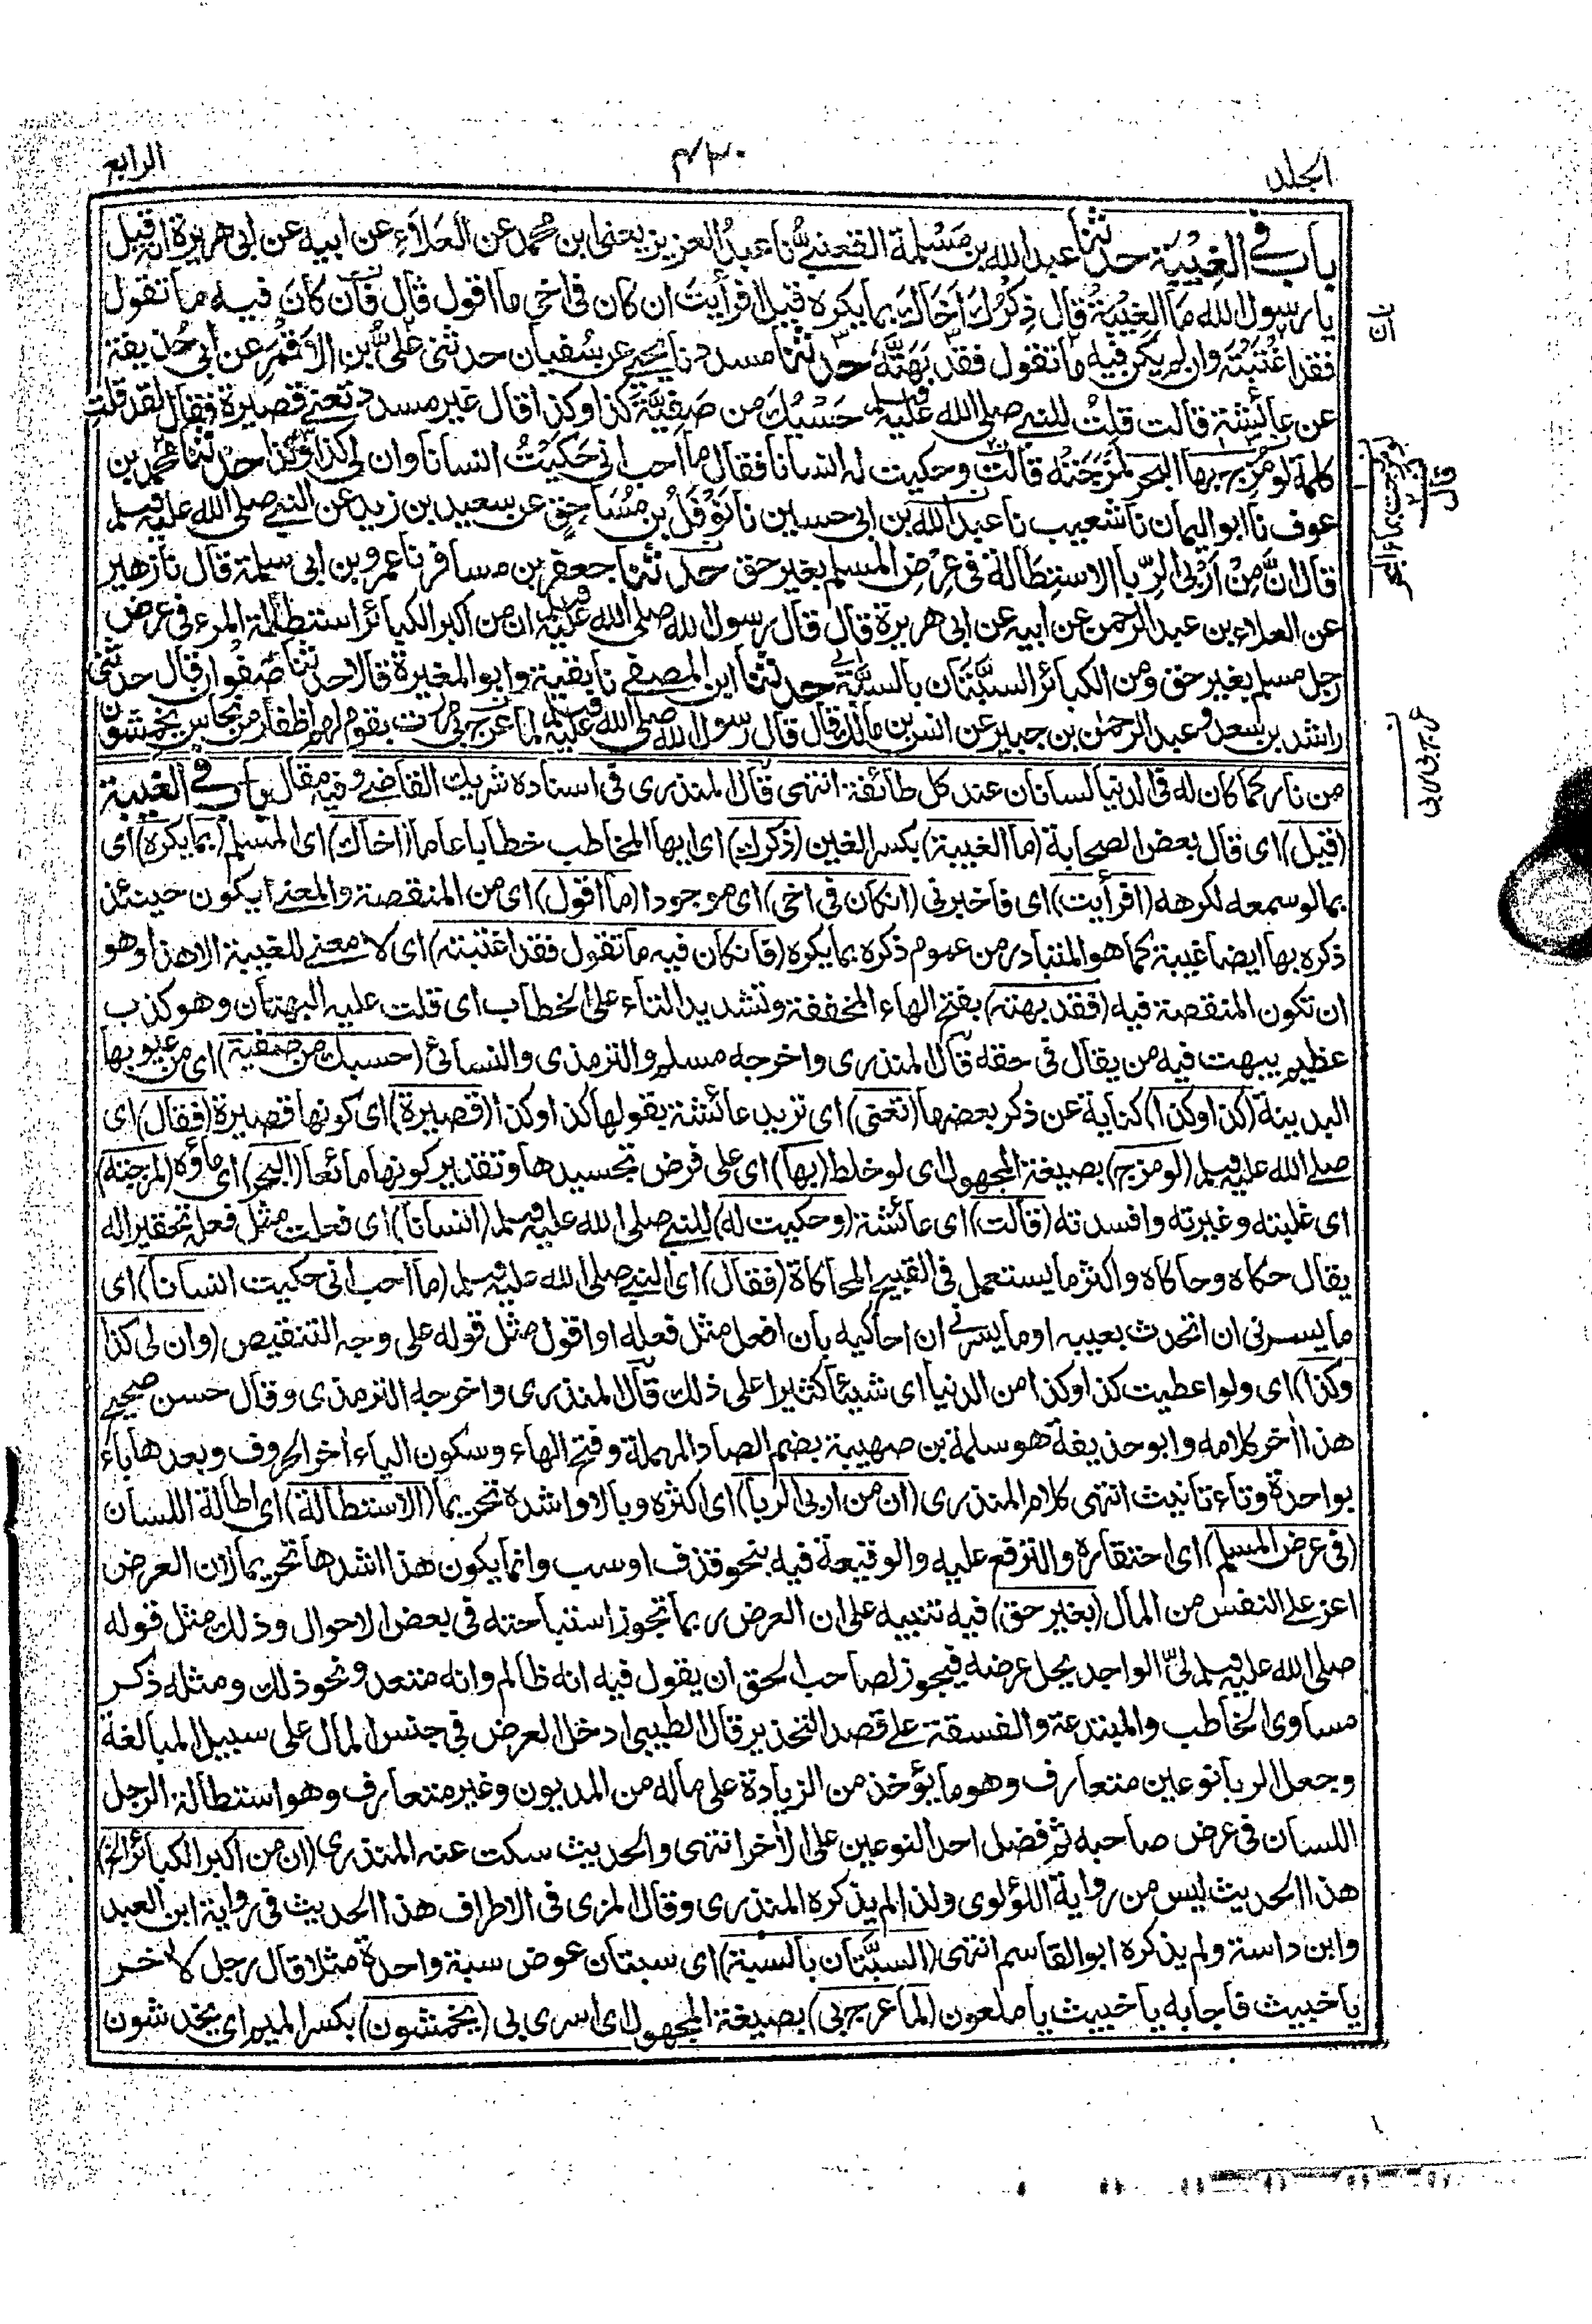 الجلد
۴۳۰
الرابع
باب في الغِيْبَة حدثنا عبد الله بن مَسْلمة القعنبيُّ نا عبدُ العزيز يعنى ابن محمد عن العَلَاءِ عن ابيه عن ابى هريرة انه قيل
يا رسول الله ما الغيبةُ قال ذِكْرُكَ اَخَاكَ بما يكره قيل افرأيتَ ان كان فى اخى ما اقول قال فان كان فيه ما تقول
فقد اغْتَبْتَه وان لم يكن فيه ما تقول فقد بَهَتَّهٗ حدثنا مسدد نا يحيى عن سُفيان حدثنى علىُّ بن الأَقْمَرِ عن أبى حُذيفة
عن عائشة قالت قلتُ للنبى صلى الله عليه وسلم حَسْبُكَ من صَفِيَّةَ كذا وكذا قال غير مسدد تعنى قصيرة فقال لقد قلتِ
كلمة لو مُزِجَ بها البحر لَمَزَجَتْه قالت وحكيت له انسانا فقال ما احب انى حَكَيْتُ انسانا وان لى كذا وكذا حدثنا محمد بن
عوف نا ابو اليمان نا شعيب نا عبد الله بن ابى حسين نا نَوْفَلُ بن مُسَاحِقٍ عن سعيد بن زيد عن النبى صلى الله عليه وسلم
قال انَّ مِنْ اَرْبَى الرِّبا الاستِطَالة فى عِرْضِ المسلم بغير حق حدثنا جعفر بن مسافر نا عمرو بن ابى سلمة قال نا زهير
عن العلاء بن عبد الرحمن عن ابيه عن ابى هريرة قال قال رسول الله صلى الله عليه وسلم ان من اكبر الكبائر استطالة المرء فى عرض
رجل مسلم بغير حق ومن الكبائر السبَّتَان بالسبَّة حدثنا ابن المصفى نا بقية وابو المغيرة قالا حدثنا صفوان قال حدثنى
راشد بن سعد وعبد الرحمٰن بن جبير عن انس بن مالك قال قال رسول الله صلى الله عليه وسلم لما عرج بى مررت بقوم لهم اظفار من نحاس يخمشون
من نار كما كان له فى الدنيا لسانان عند كل طائفة انتهى قال المنذرى فى اسناده شريك القاضى وفيه مقال باب فى الغيبة
(قيل) اى قال بعض الصحابة (ما الغيبة) بكسر الغين (ذكرك) اى ايها المخاطب خطابا عاما (اخاك) اى المسلم (بما يكره) اى
بما لو سمعه لكرهه (افرأيت) اى فاخبرنى (ان كان فى اخى) اى موجودا (ما اقول) اى من المنقصة والمعنى ايكون حينئذ
ذكره بها ايضا غيبة كما هو المتبادر من عموم ذكره بما يكره (فان كان فيه ما تقول فقد اغتبته) اى لا معنى للغيبة الا هذا وهو
ان تكون المنقصة فيه (فقد بهته) بفتح الهاء المخففة وتشديد التاء على الخطاب اى قلت عليه البهتان وهو كذب
عظيم يبهت فيه من يقال فى حقه قال المنذرى واخرجه مسلم والترمذى والنسائى (حسبك من صفية) اى من عيوبها
البدينة (كذا وكذا) كناية عن ذكر بعضها (تعنى) اى تريد عائشة بقولها كذا وكذا (قصيرة) اى كونها قصيرة (فقال) اى
صلى الله عليه وسلم (لو مزج) بصيغة المجهول اى لو خلط (بها) اى على فرض تجسيدها وتقدير كونها مائعا (البحر) اى ماؤه (لمزجته)
اى غلبته وغيرته وافسدته (قالت) اى عائشة (وحكيت له) للنبى صلى الله عليه وسلم (انسانا) اى فعلت مثل فعله تحقيرا له
يقال حكاه وحاكاه واكثر ما يستعمل فى القبيح المحاكاة (فقال) اى النبى صلى الله عليه وسلم (ما احب انى حكيت انسانا) اى
ما يسرنى ان اتحدث بعيبه او ما يسرنى ان احاكيه بان افعل مثل فعله او اقول مثل قوله على وجه التنقيص (وان لى كذا
وكذا) اى ولو اعطيت كذا وكذا من الدنيا اى شيئا كثيرا على ذلك قال المنذرى واخرجه الترمذى وقال حسن صحيح
هذا اٰخر كلامه وابو حذيفة هو سلمة بن صهيبة بضم الصاد المهملة وفتح الهاء وسكون الياء اٰخر الحروف وبعدها باء
بواحدة وتاء تانيث انتهى كلام المنذرى (ان من اربى الربا) اى اكثره وبالا واشده تحريما (الاستطالة) اى اطالة اللسان
(فى عرض المسلم) اى احتقاره والترفع عليه والوقيعة فيه بنحو قذف او سب وانما يكون هذا اشدها تحريما لان العرض
اعز على النفس من المال (بغير حق) فيه تنبيه على ان العرض ربما تجوز استباحته فى بعض الاحوال وذلك مثل قوله
صلى الله عليه وسلم لىّ الواجد يحل عرضه فيجوز لصاحب الحق ان يقول فيه انه ظالم وانه متعد ونحو ذلك ومثله ذكر
مساوى الخاطب والمبتدعة والفسقة على قصد التحذير قال الطيبى ادخل العرض فى جنس المال على سبيل المبالغة
وجعل الربا نوعين متعارف وهو ما يؤخذ من الزيادة على ماله من المديون وغير متعارف وهو استطالة الرجل
اللسان فى عرض صاحبه ثم فضل احد النوعين على الاٰخر انتهى والحديث سكت عنه المنذرى (ان من اكبر الكبائر الخ)
هذا الحديث ليس من رواية اللؤلوى ولذا لم يذكره المنذرى وقال المزى فى الاطراف هذا الحديث فى رواية ابن العبد
وابن داسة ولم يذكره ابو القاسم انتهى (السبَّتان بالسبة) اى سبتان عوض سبة واحدة مثلا قال رجل لاٰخر
يا خبيث فاجابه يا خبيث يا ملعون (لما عرج بى) بصيغة المجهول اى اسرى بى (يخمشون) بكسر الميم اى يخدشون